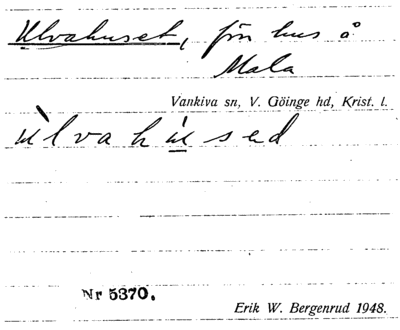 Ulvahuset, förr hus å
Mala
Vankiva sn, V. Göinge hd, Krist. l.
ùlvahúsed
Nr 5370.
Erik W. Bergenrud 1948.